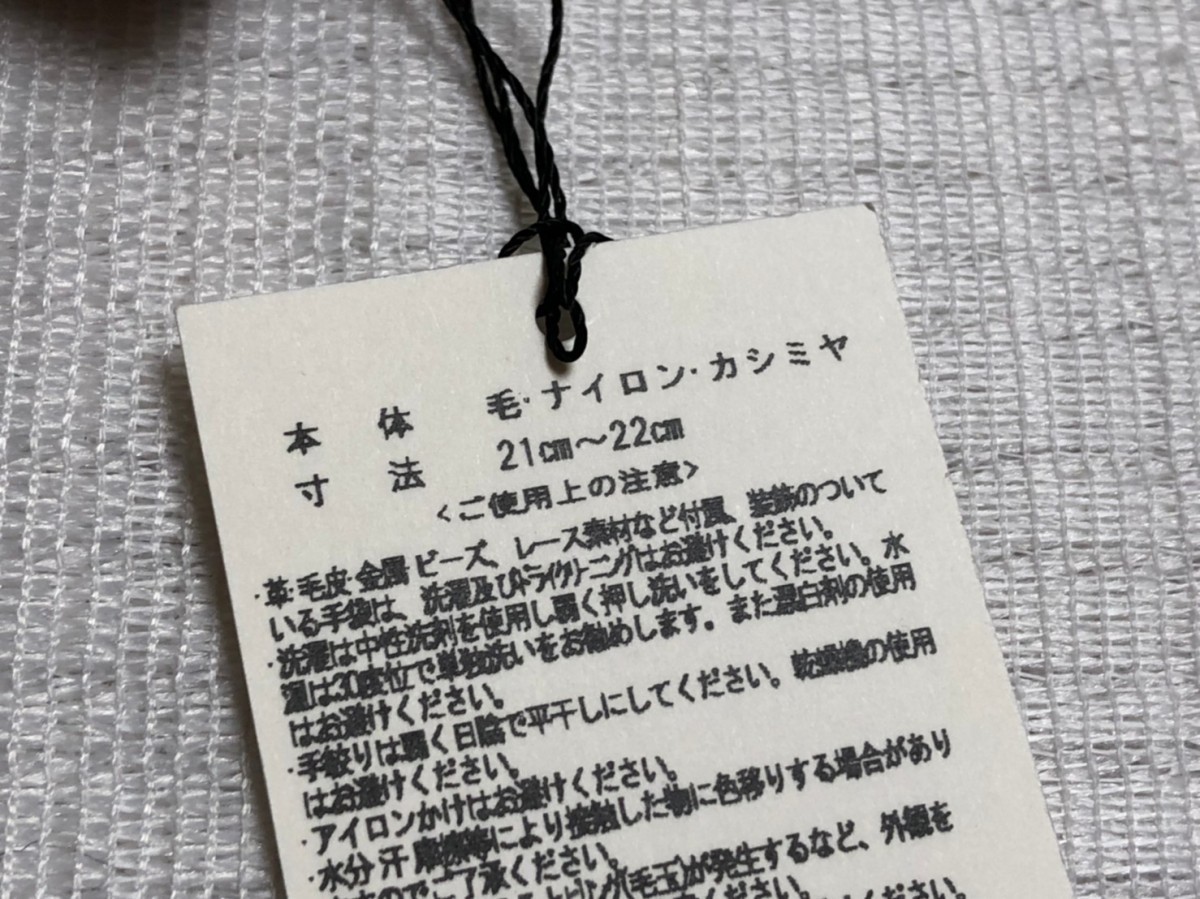 本 体 毛・ナイロン・カシミヤ
寸 法 21㎝～22㎝
<ご使用上の注意>
・革・毛皮・金属 ビーズ、レース素材など付属、装飾のついて
いる手袋は、洗濯及びドライクリーニングはお避けください。
・洗濯は中性洗剤を使用し弱く押し洗いをしてください。水
温は30度位で単独洗いをお勧めします。また漂白剤の使用
はお避けください。
・手絞りは弱く日陰で平干しにしてください。乾燥機の使用
はお避けください。
・アイロンかけはお避けください。
・水分 汗 摩擦等により接触した物に色移りする場合があり
ますのでご了承ください。
ピリング(毛玉)が発生するなど、外観を
ください。
ください。